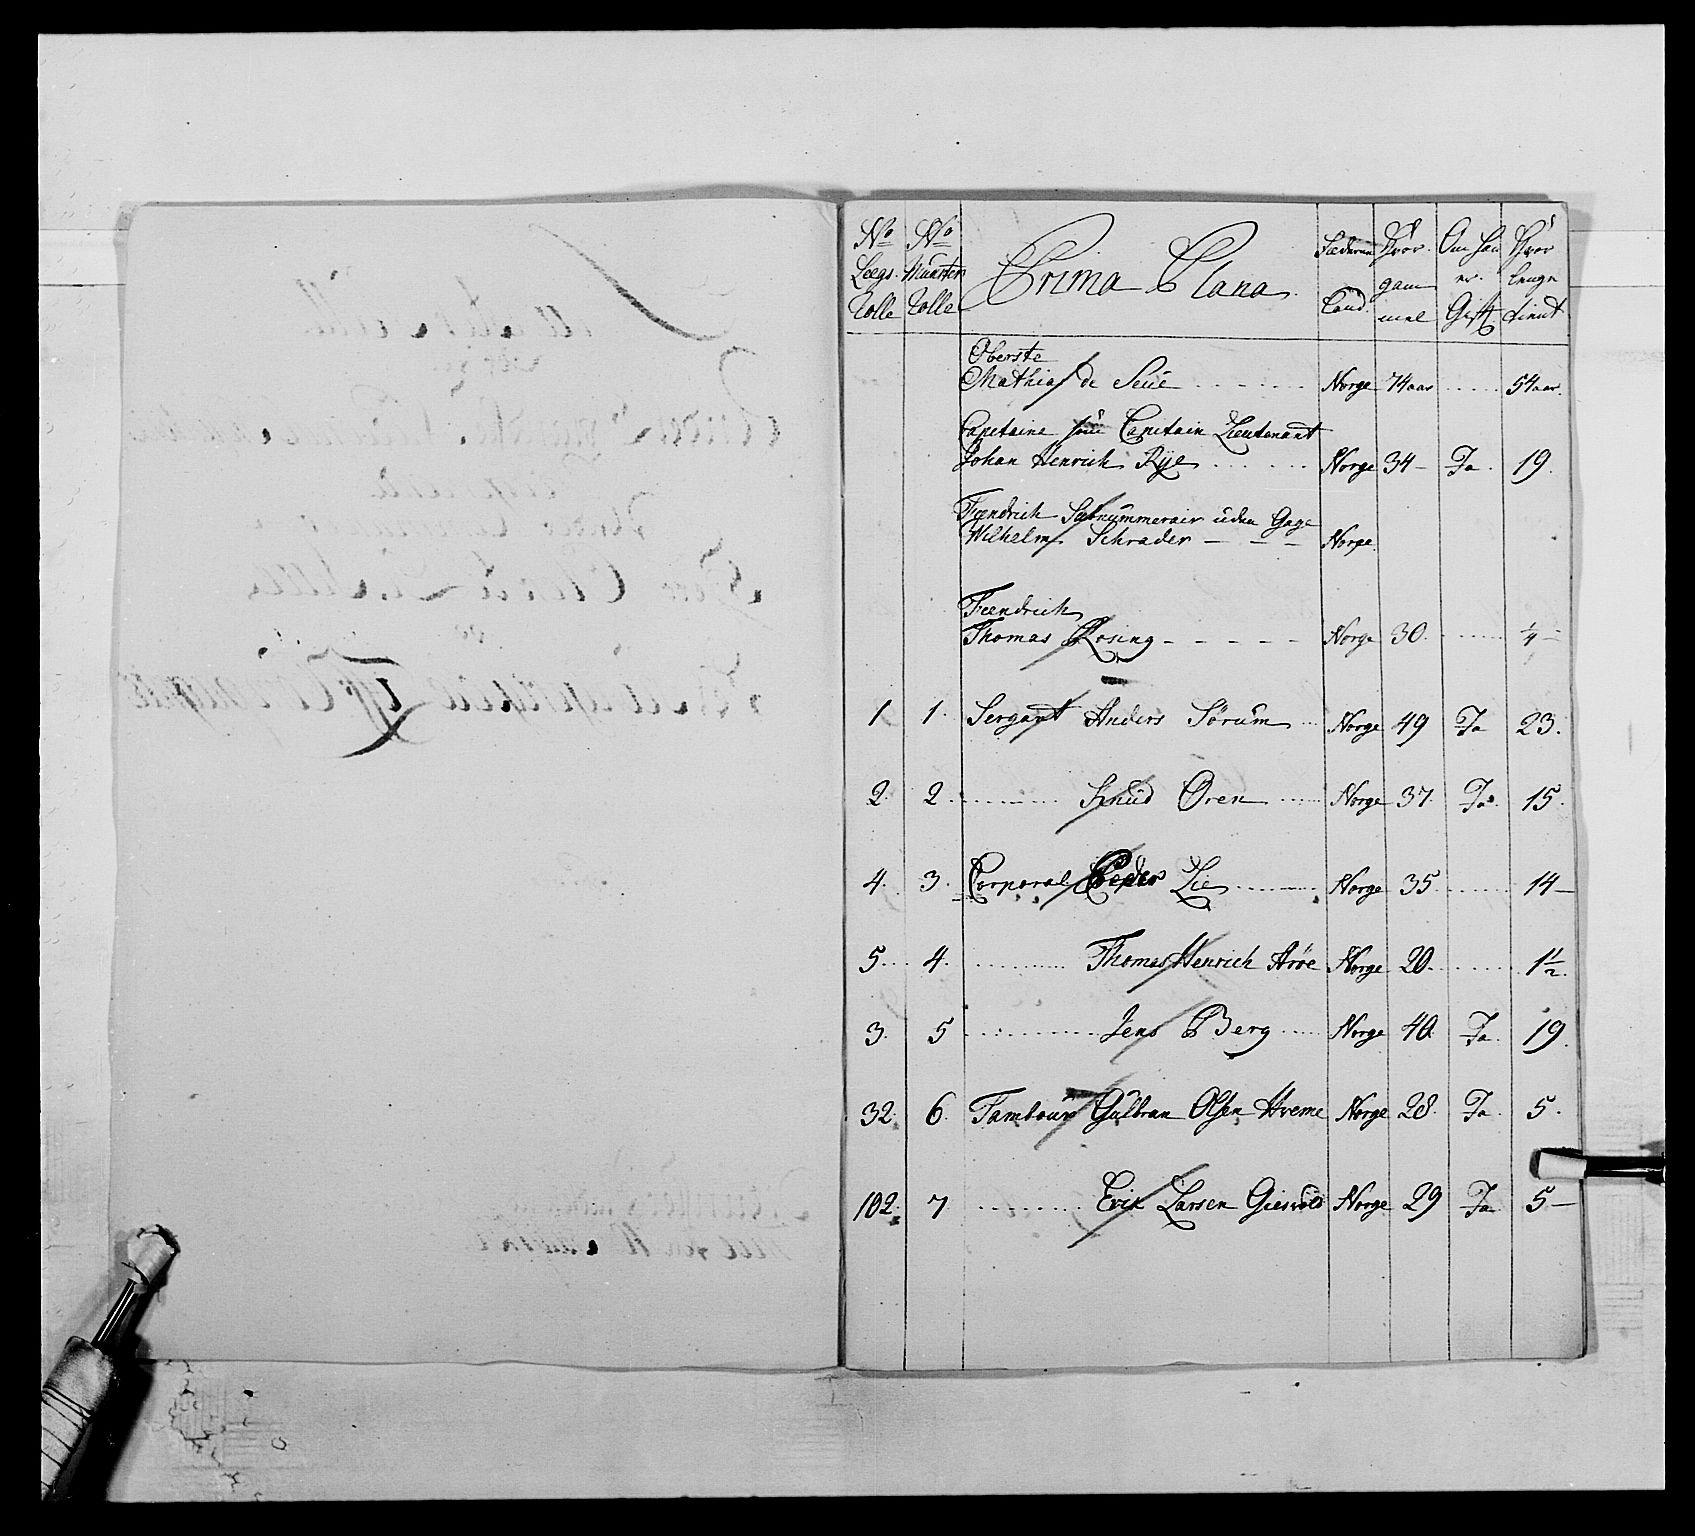 No No Prima Plana. Fæderne Hvor Om han Hvor
Lægs Munster gam er. lenge
Rolle Rolle Land mel Gift tient
Oberste
Mathias de Seue Norge 74 aar 54 aar.
Capitaine som Capitain Lieutenant
Johan Henrich Rye Norge 34 Ja. 19.
Fændrich Subnummerair uden Gage
Wilhelm Schrader Norge
Fændrich
Thomas Rosing Norge 30. 1/4
1 1. Sergant Anders Sørum Norge 49 Ja 23.
2. 2. Knud Oren Norge 37. Ja. 15.
4. 3. Corporal Peder Lie Norge 35 14
5. 4. Thomas Henrich Arøe Norge 20. 1 1/2.
3. 5 Jens Berg Norge 40. Ja. 19.
32. 6. Tambour Gulbran Olsen Hveme Norge 28. Ja. 5.
102. 7 Erik Larsen Giesvold Norge 29 Ja 5